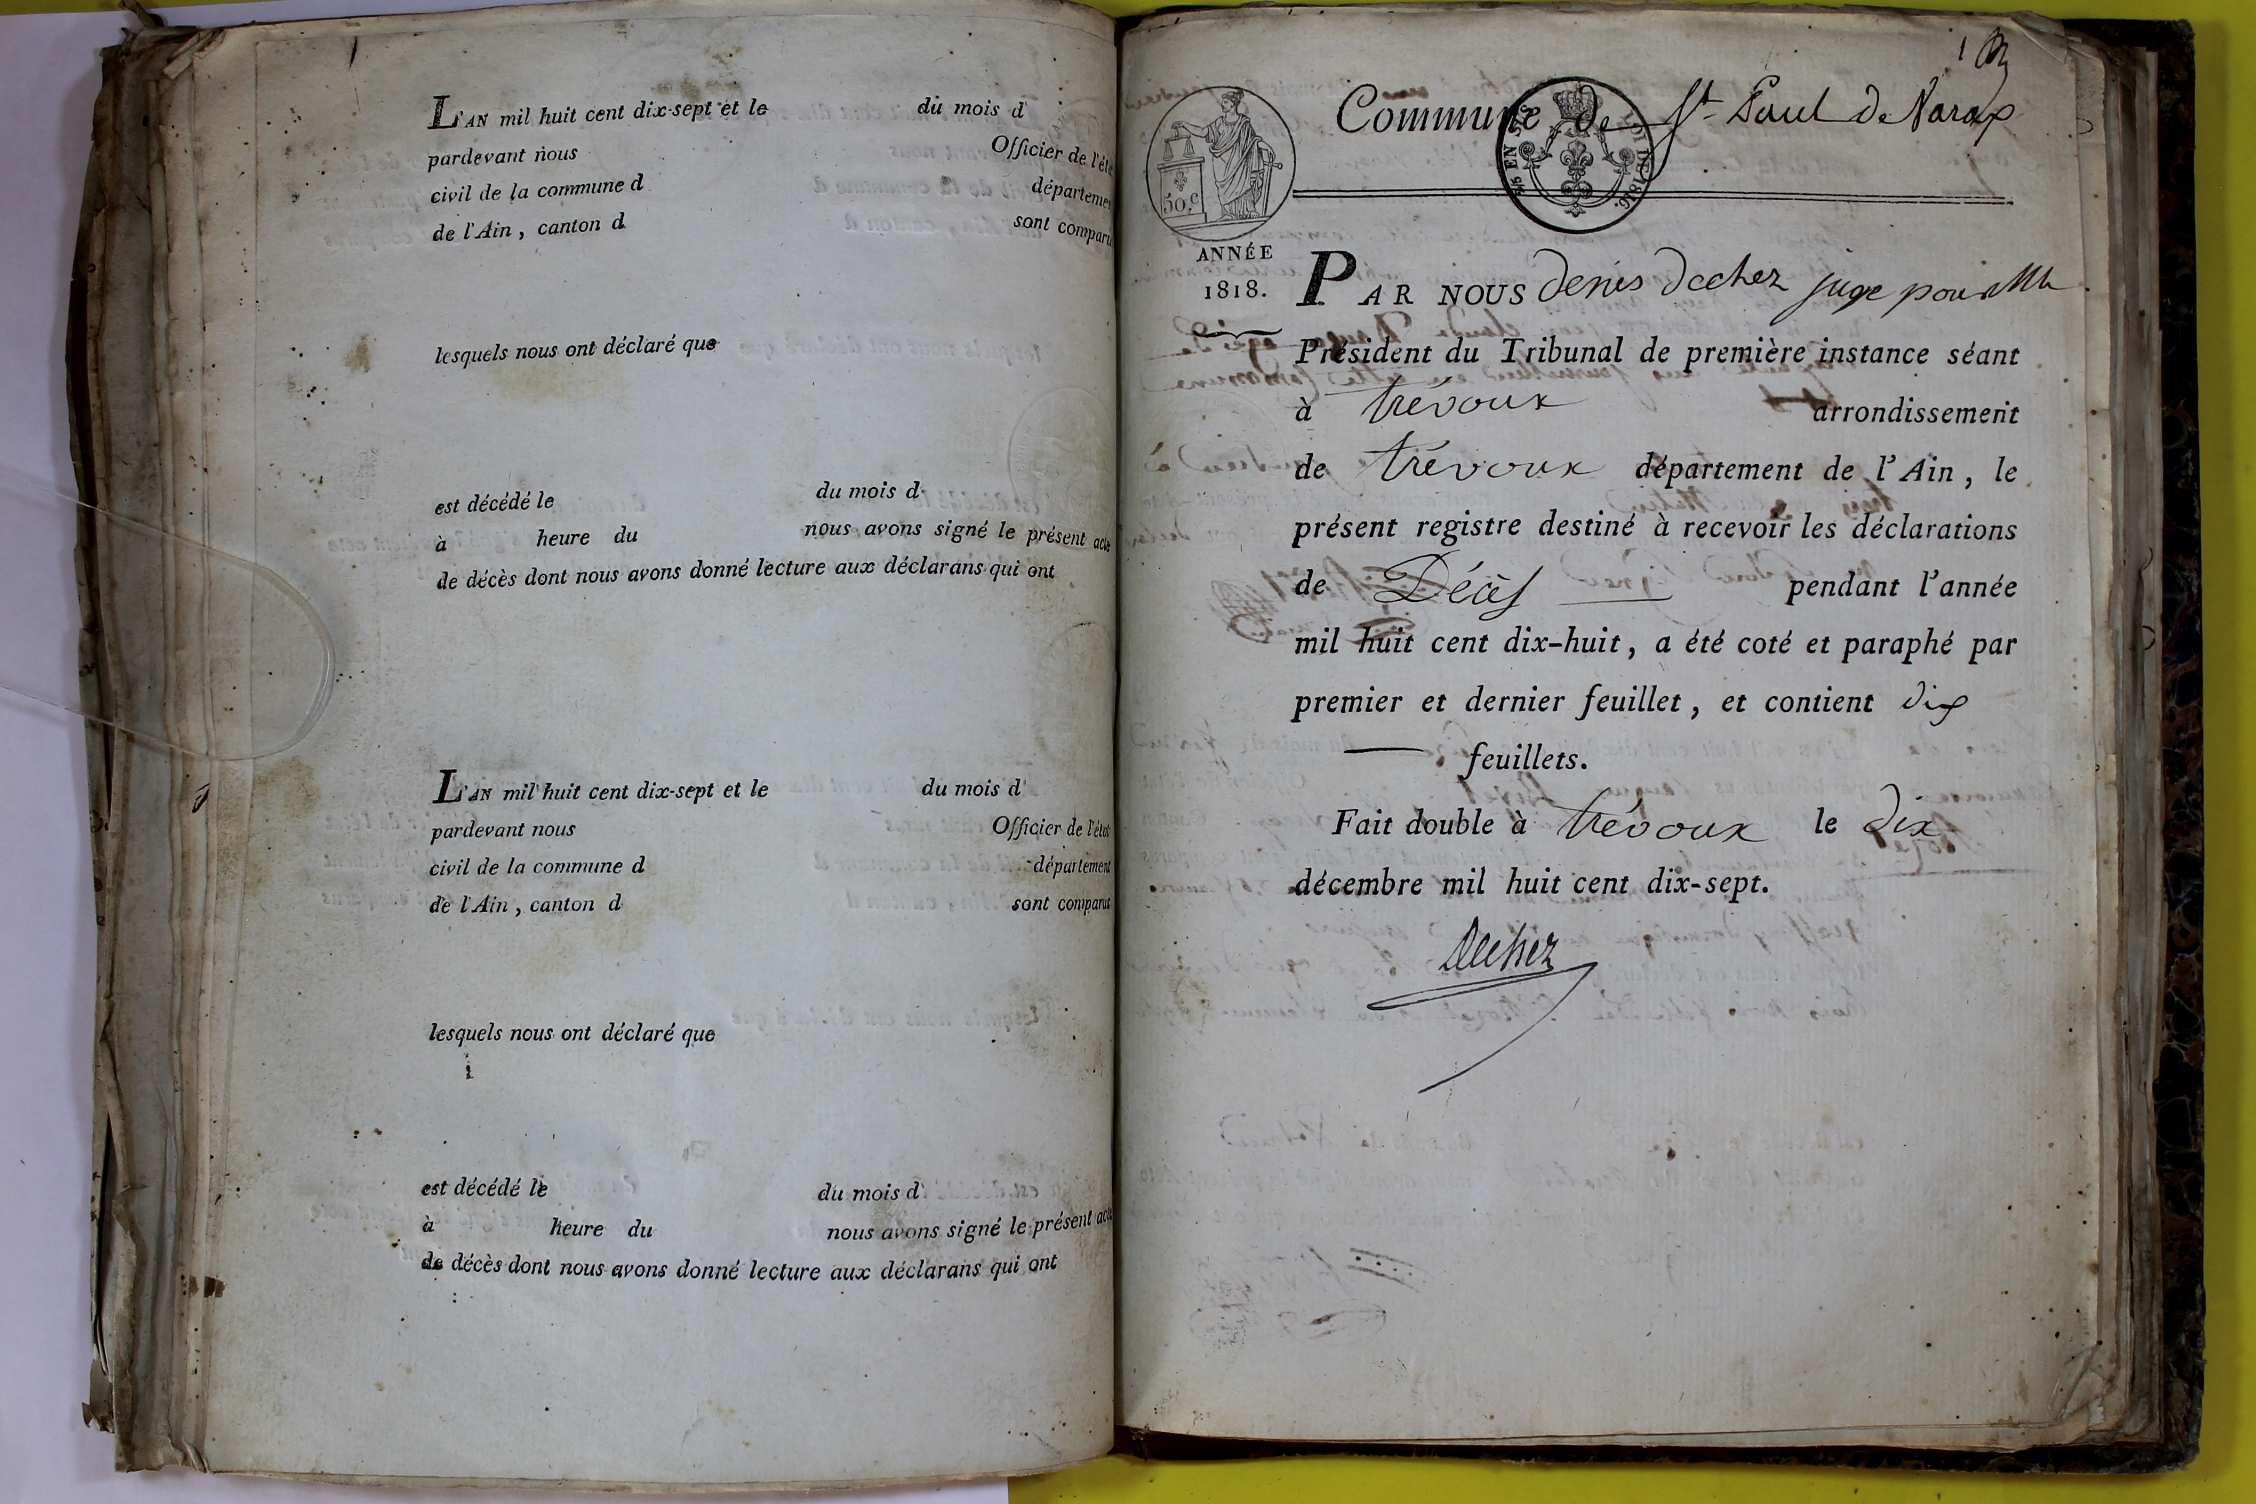 L'AN mil huit cent dix-sept et le du mois d
pardevant nous Officier de l'éta
civil de la commune d départemen
de l'Ain, canton d sont comparu
lesquels nous ont déclaré que
est décédé le du mois d
à heure du nous avons signé le présent acte
de décès dont nous avons donné lecture aux déclarans qui ont
L'AN mil huit cent dix-sept et le du mois d
pardevant nous Officier de l'état
civil de la commune d département
de l'Ain, canton d sont comparut
lesquels nous ont déclaré que
est décédé le du mois d
à heure du nous avons signé le présent acte
de décès dont nous avons donné lecture aux déclarans qui ont
1
Commune de St Paul de Varax
50.c
EN SUS
DE 1816.
ANNÉE
1818.
PAR NOUS denis dechez juge pour Mr
Président du Tribunal de première instance séant
à trévoux arrondissement
de trévoux département de l'Ain, le
présent registre destiné à recevoir les déclarations
de Décès pendant l'année
mil huit cent dix-huit, a été coté et paraphé par
premier et dernier feuillet, et contient dix
feuillets.
Fait double à trévoux le dix
décembre mil huit cent dix-sept.
Dechez